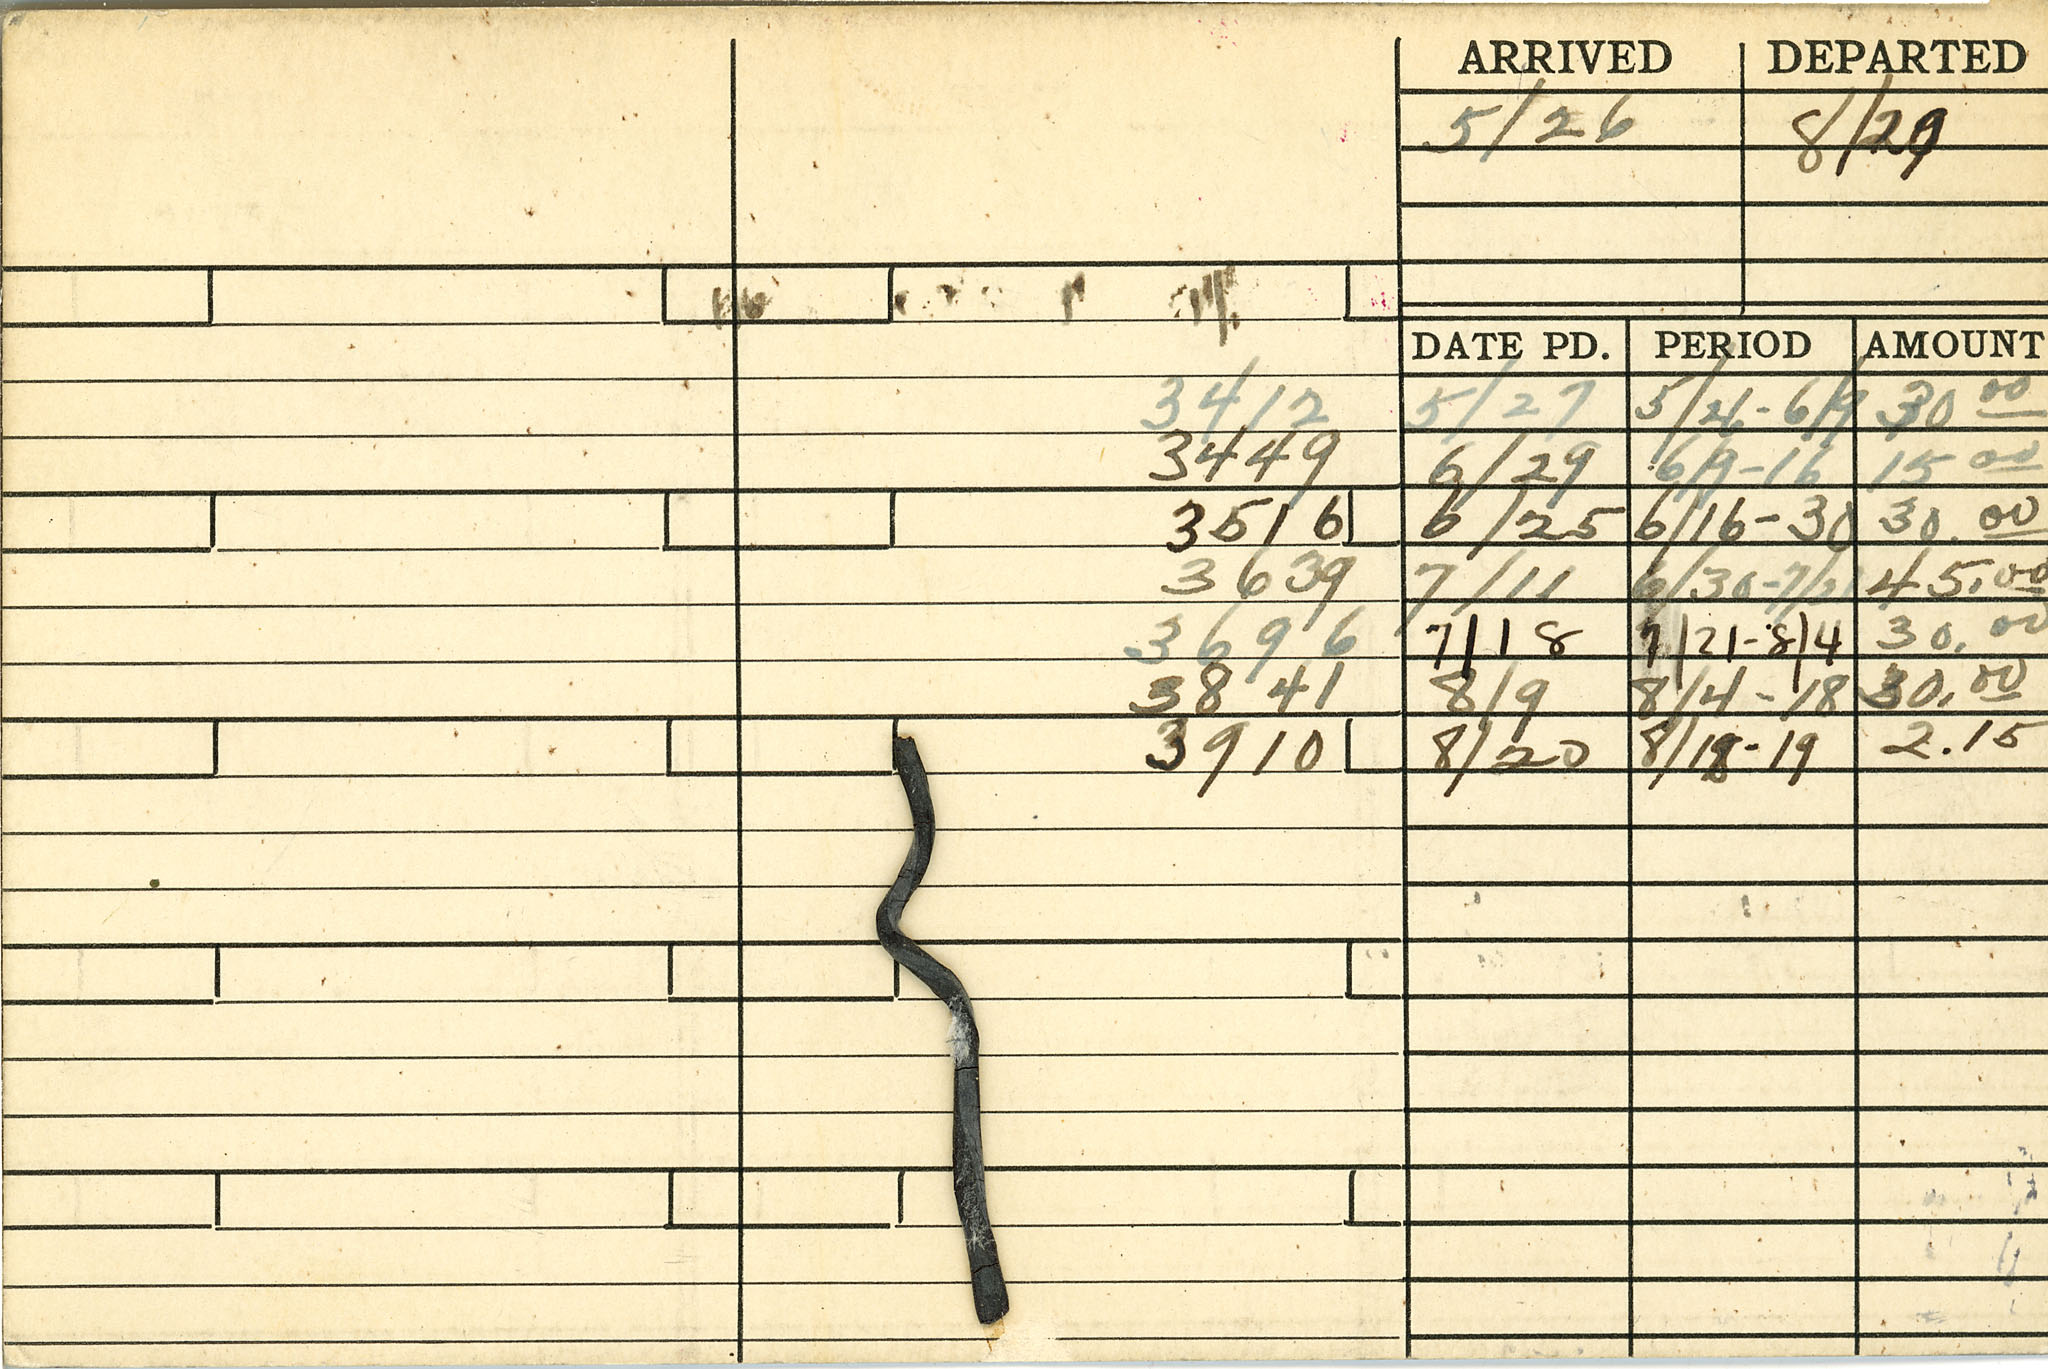 ARRIVED DEPARTED
5/26 8/29
DATE PD. PERIOD AMOUNT
3412 5/27 5/26-6/9 30.00
3449 6/29 6/9-16 15.00
3516 6/25 6/16-30 30.00
3639 7/11 6/30-7/21 45.00
3696 7/18 7/21-8/4 30.00
3841 8/9 8/4-18 30.00
3910 8/20 8/18-19 2.15